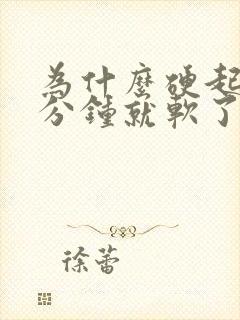 為什麼硬起
分鐘就軟了
徐蕾